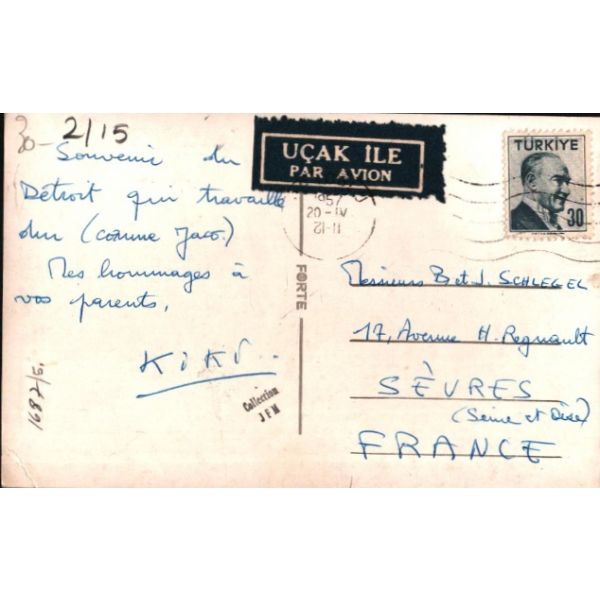 30-
2/15
Souvenir du
Détroit qui travaille
dur (comme Jaco.)
Mes hommages à
vos parents,
KIKI.
UÇAK İLE
PAR AVION
1957
20-IV
21-11
TÜRKİYE
30
FORTE
Collection
JFM
Messieurs B et J. SCHLEGEL
17, Avenue H. Regnault
SÈVRES
(Seine et Oise)
FRANCE